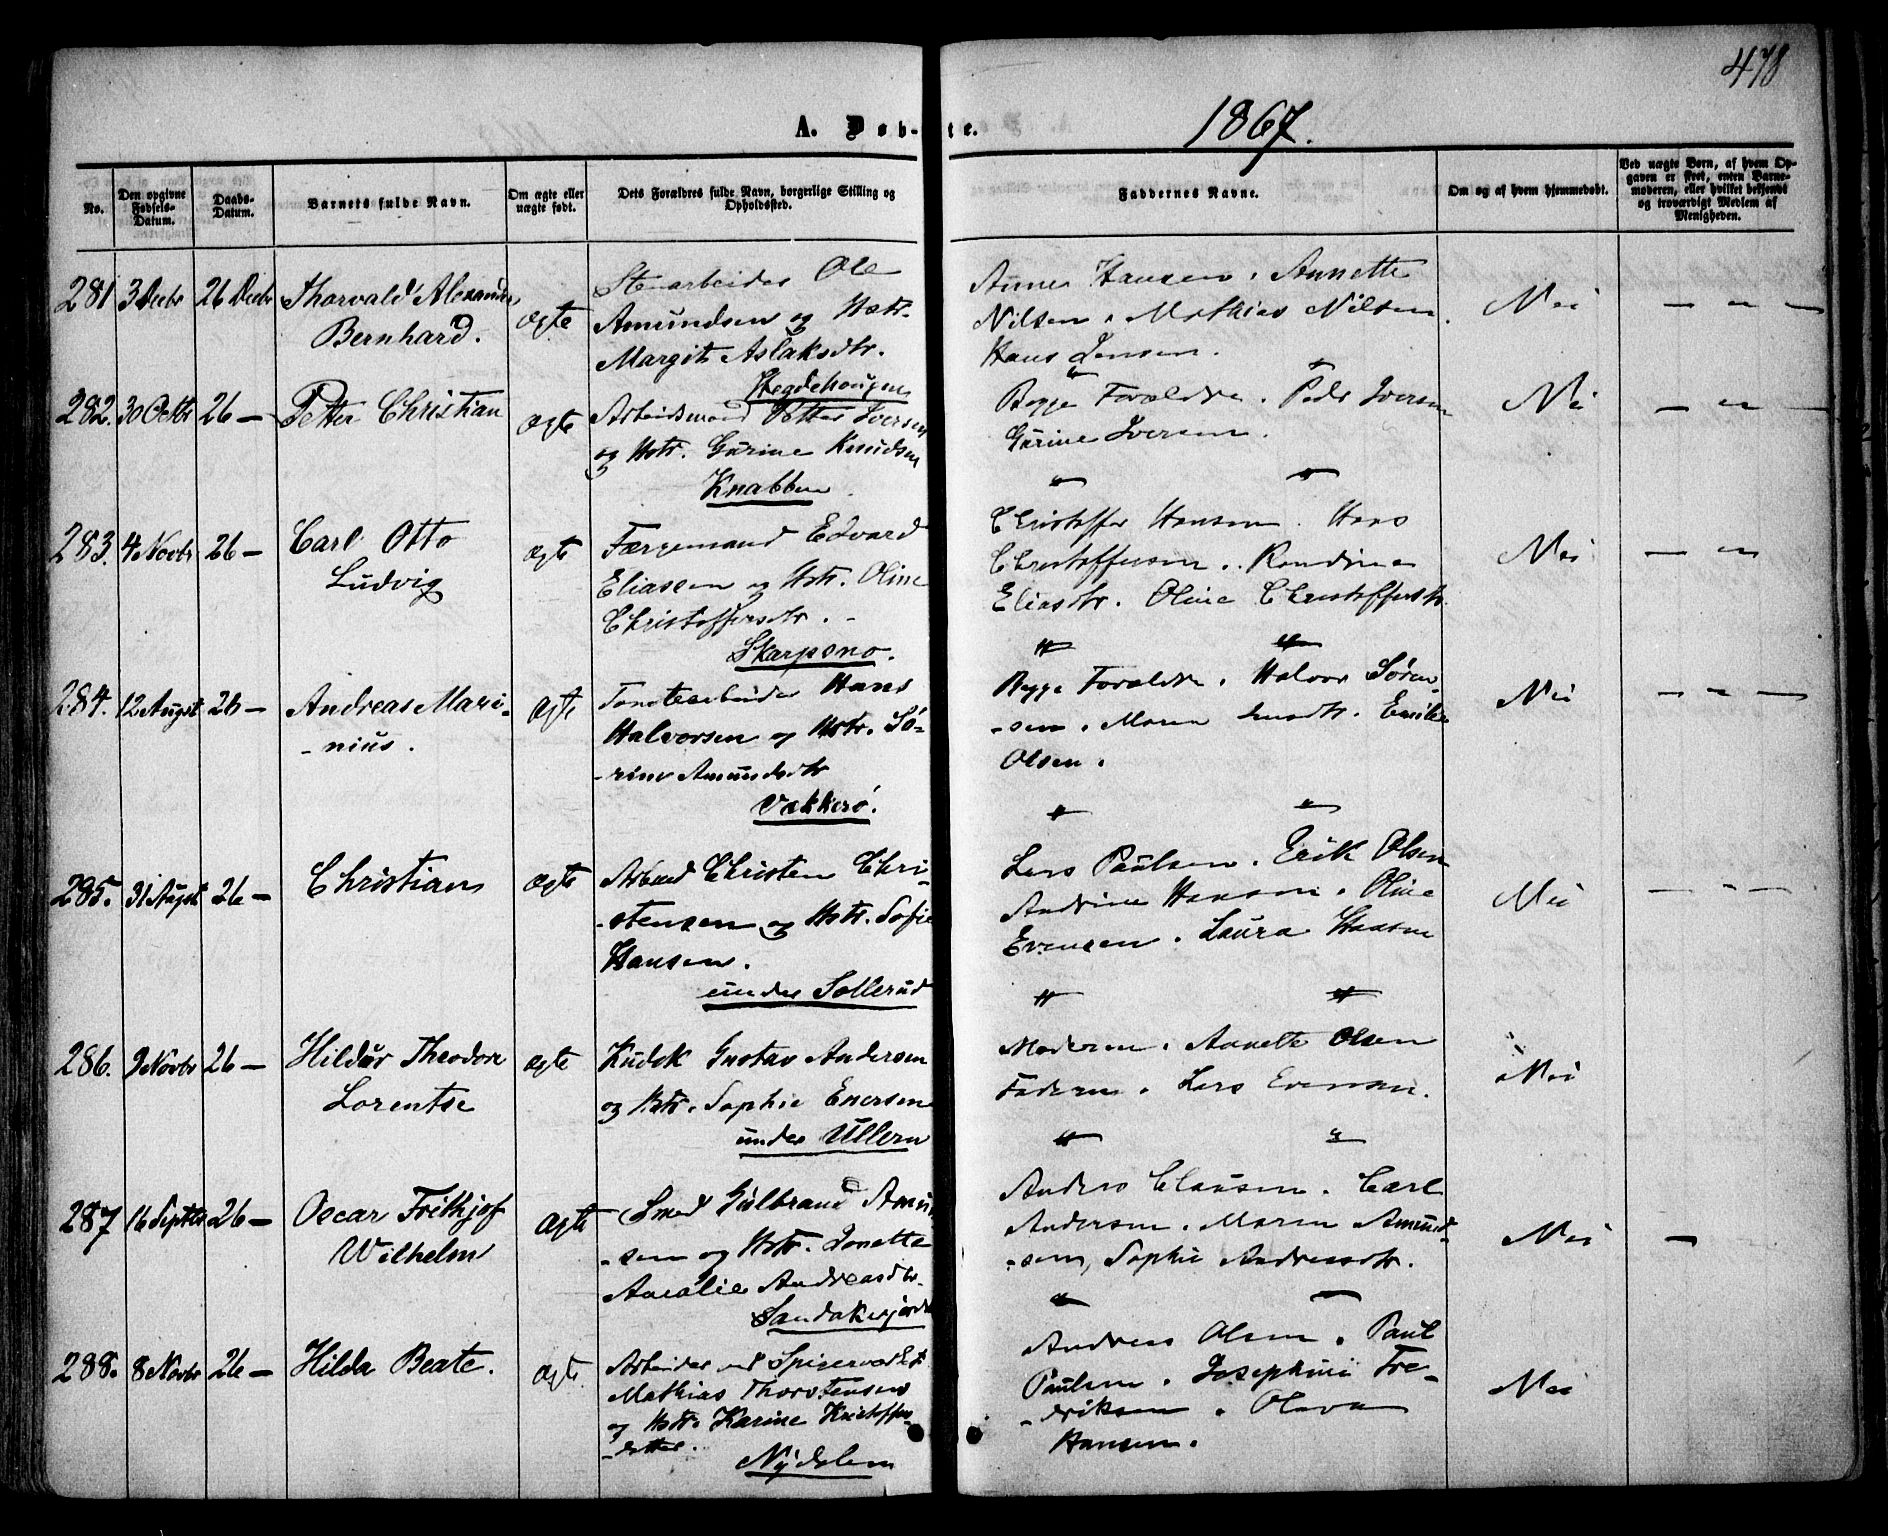 478
A. Døb-te.
1867.
No.
Den opgivne Fødsels-Datum.
Daabs-Datum.
Barnets fulde Navn.
Om ægte eller uægte født.
Dets Forældres fulde Navn, borgerlige Stilling og Opholdssted.
Faddernes Navne.
Om og af hvem hjemmedøbt.
Ved uægte Børn, af hvem Opgaven er skeet, enten Barnemoderen, eller hvilket bekjendt og troværdigt Medlem af Menigheden.
281 3 Decbr 26 Decbr Thorvald Alexander
Bernhard.
Ægte
Stenarbeider Ole
Amundsen og Hstr.
Margit Aslaksdtr.
Hegdehaugen
Hansen. Annette
Nilsen. Mathias Nilsen.
Hans Jensen.
Nei — " —
282. 30 Octbr 26 — Petter Christian
Ægte
Arbeidsmand Petter Iversen
og Hstr. Gurine Knudsen
Knabben
Begge Forældre. Peder Iversen
Gurine Iversen.
Nei — " —
283. 4 Novbr 26 — Carl Otto
Ludvig
Ægte
Færgemand Edvard
Eliassen og Hstr. Oline
Christoffersdtr. -
Skarpsno.
" "
Christoffer Hansen. Hans
Christoffersen. Randine
Eliasdtr. Oline Christoffersdtr.
Nei — "
284. 12 Augst 26 — Andreas Mari-
-nius.
Ægte
Tomtearbeider Hans
Halvorsen og Hstr. Sø-
-rine Amundsdtr
Vækkerø.
" "
Begge Forældre. Halvor Søren-
-sen. Maren Emilie
Olsen.
Nei — — —
285. 31 Augst 26 — Christian
Ægte
Arbmd Christen Chri-
-stensen og Hstr. Sofie
Hansen.
under Sollerud
" "
Lars Paulsen. Erik Olsen
Andrine Hansen. Oline
Evensen. Laura Hansen
Nei — - —
286. 9 Novbr 26 — Hildur Theodore
Lorentse
Ægte
Kudsk Gustav Andersen
og Hstr. Sophie Enersen
under Ullern
" "
Moderen. Annette Olsen
Faderen. Lars Evensen.
Nei
287 16 Septbr 26 — Oscar Frithjof
Wilhelm
Ægte
Smed Gulbrand Amund
-sen og Hstr. Jonette
Amalie Andreasdtr.
Sandakerjordet
" "
Anders Clausen. Carl
Andersen. Maren Amund-
-sen, Sophie Andreasdtr.
Nei —
288. 8 Novbr 26 — Hilda Beate.
Ægte
Arbeider ved Spigerværket
Mathias Thorstensen
og Hstr. Karine Kristoffer-
-datter.
Nydalen
" —
Andreas Olsen. Paul
Paulsen. Josephine Fre-
-driksen. Olava
Hansen.
Nei